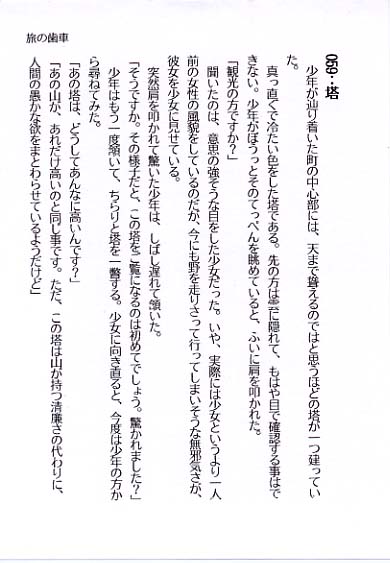 旅の歯車
059：塔
　少年が辿り着いた町の中心部には、天まで聳えるのではと思うほどの塔が一つ建ってい
た。
　真っ直ぐで冷たい色をした塔である。先の方は雲に隠れて、もはや目で確認する事はで
きない。少年がぼうっとそのてっぺんを眺めていると、ふいに肩を叩かれた。
「観光の方ですか？」
　聞いたのは、意思の強そうな目をした少女だった。いや、実際には少女というより一人
前の女性の風貌をしているのだが、今にも野を走りさって行ってしまいそうな無邪気さが、
彼女を少女に見せている。
　突然肩を叩かれて驚いた少年は、しばし遅れて頷いた。
「そうですか。その様子だと、この塔をご覧になるのは初めてでしょう。驚かれました？」
　少年はもう一度頷いて、ちらりと塔を一瞥する。少女に向き直ると、今度は少年の方か
ら尋ねてみた。
「あの塔は、どうしてあんなに高いんです？」
「あの山が、あれだけ高いのと同じ事です。ただ、この塔は山が持つ清廉さの代わりに、
人間の愚かな欲をまとわらせているようだけど」